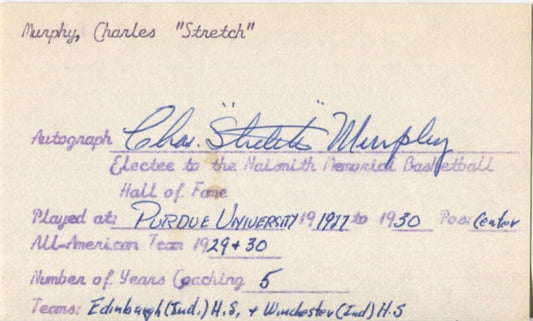 Murphy, Charles "Stretch"
Autograph Chas. "Stretch" Murphy
Electee to the Naismith Memorial Basketball
Hall of Fame
Played at: PURDUE UNIVERSITY 19 1927 to 1930 Pos: Center
All-American Team 1929 + 30
Number of Years Coaching 5
Teams: Edinburgh (Ind.) H.S. + Winchester (Ind) H.S